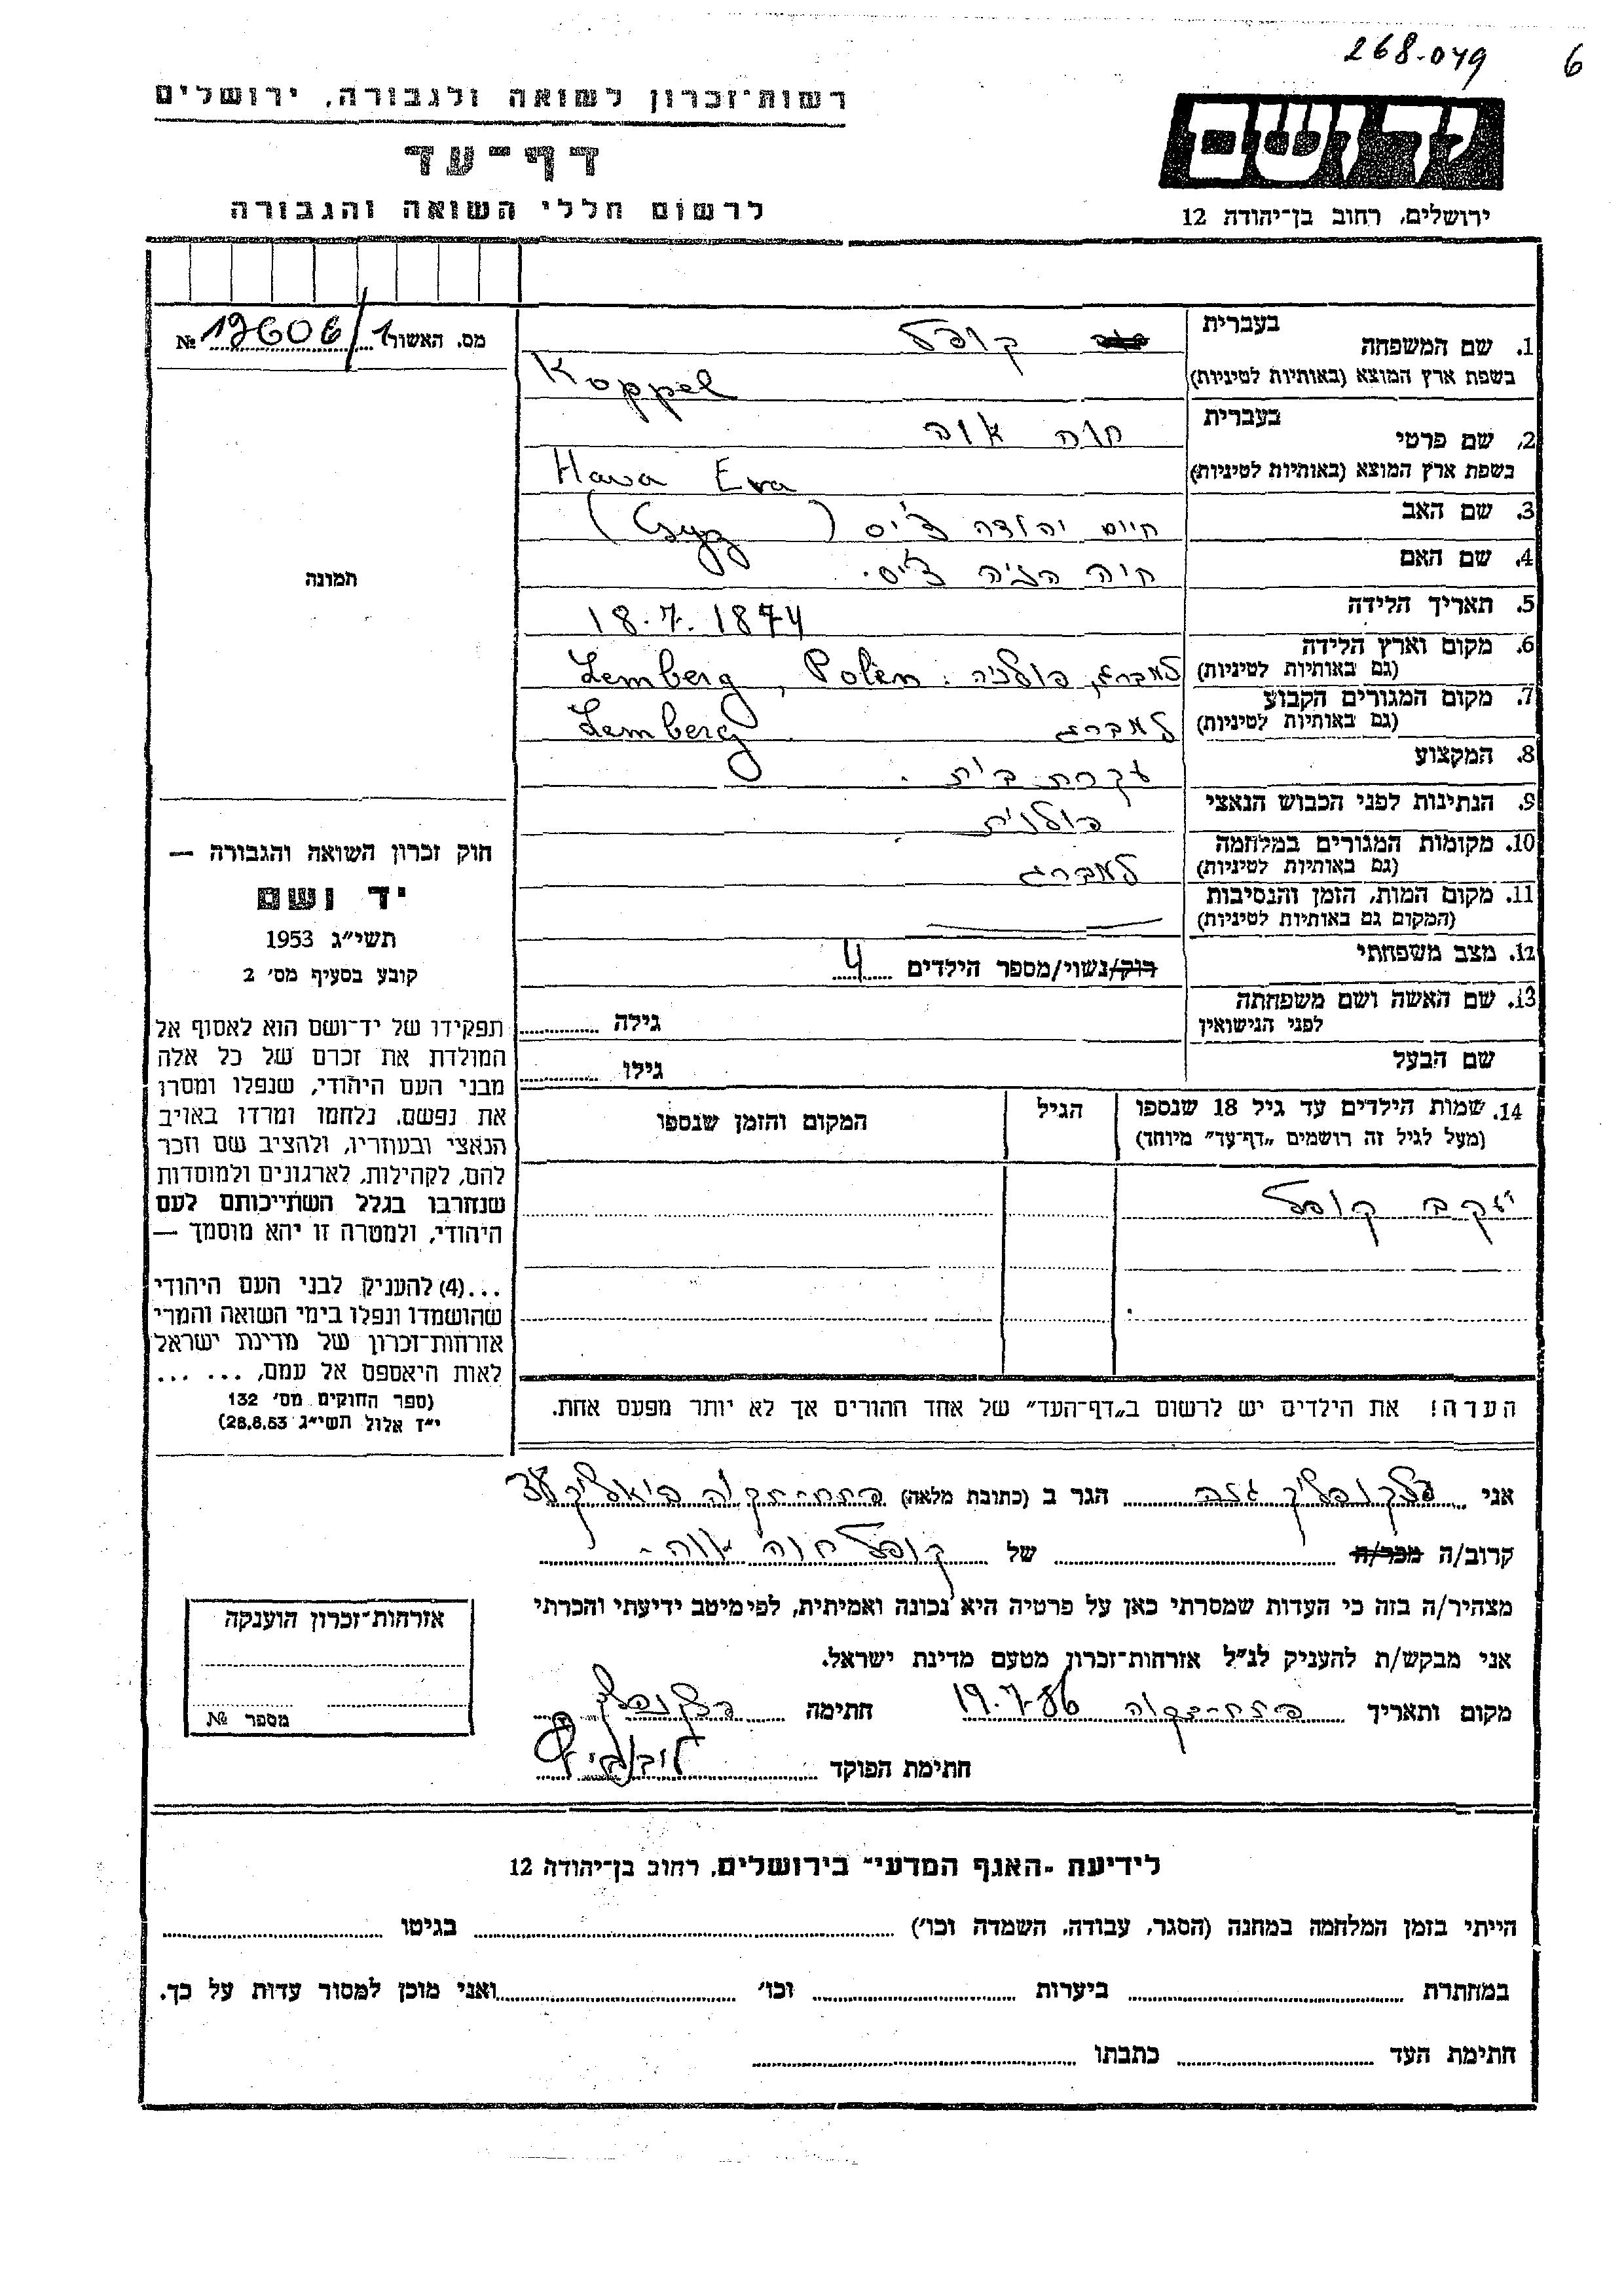 268.079 6
רשות־זכרון לשואה ולגבורה, ירושלים
דף־עד
לרשום חללי השואה והגבורה
יד ושם
ירושלים, רחוב בן־יהודה 12
1. שם המשפחה
בעברית קופל
בשפת ארץ המוצא (באותיות לטיניות) Koppel
2. שם פרטי
בעברית חוה אוה
בשפת ארץ המוצא (באותיות לטיניות) Hava Eva
3. שם האב חיים יהודה צ'יס (Czyz)
4. שם האם חיה הניה צ'יס.
5. תאריך הלידה 18.7.1874
6. מקום וארץ הלידה
(גם באותיות לטיניות) למברג, פולניה. Lemberg, Polen
7. מקום המגורים הקבוע
(גם באותיות לטיניות) למברג Lemberg
8. המקצוע עקרת בית.
9. הנתינות לפני הכבוש הנאצי פולנית
10. מקומות המגורים במלחמה
(גם באותיות לטיניות) למברג
11. מקום המות, הזמן והנסיבות
(המקום גם באותיות לטיניות)
12. מצב משפחתי רוק/נשוי/מספר הילדים 4
13. שם האשה ושם משפחתה
לפני הנישואין גילה
שם הבעל גילו
14. שמות הילדים עד גיל 18 שנספו הגיל המקום והזמן שנספו
(מעל לגיל זה רושמים „דף־עד" מיוחד)
יעקב קופל
הערה! את הילדים יש לרשום ב„דף־העד" של אחד ההורים אך לא יותר מפעם אחת.
מס. האשור 19606/1 №
תמונה
חוק זכרון השואה והגבורה —
יד ושם
תשי״ג 1953
קובע בסעיף מס׳ 2
תפקידו של יד־ושם הוא לאסוף אל
המולדת את זכרם של כל אלה
מבני העם היהודי, שנפלו ומסרו
את נפשם, נלחמו ומרדו באויב
הנאצי ובעוזריו, ולהציב שם וזכר
להם, לקהילות, לארגונים ולמוסדות
שנחרבו בגלל השתייכותם לעם
היהודי, ולמטרה זו יהא מוסמך —
...(4) להעניק לבני העם היהודי
שהושמדו ונפלו בימי השואה והמרי
אזרחות־זכרון של מדינת ישראל
לאות היאספם אל עמם, ... ...
(ספר החוקים מס׳ 132
י״ז אלול תשי״ג 28.8.53)
אני הגר ב (כתובת מלאה) פתח־תקוה ביאליק
קרוב/ה מכר/ה של קופל חוה אוה
מצהיר/ה בזה כי העדות שמסרתי כאן על פרטיה היא נכונה ואמיתית, לפי מיטב ידיעתי והכרתי
אני מבקש/ת להעניק לנ״ל אזרחות־זכרון מטעם מדינת ישראל.
מקום ותאריך פתח־תקוה 19.7.56 חתימה
חתימת הפוקד
אזרחות־זכרון הוענקה
מספר №
לידיעת „האגף המדעי" בירושלים, רחוב בן־יהודה 12
הייתי בזמן המלחמה במחנה (הסגר, עבודה, השמדה וכו׳) בגיטו
במחתרת ביערות וכו׳ ואני מוכן למסור עדות על כך.
חתימת העד כתבתו